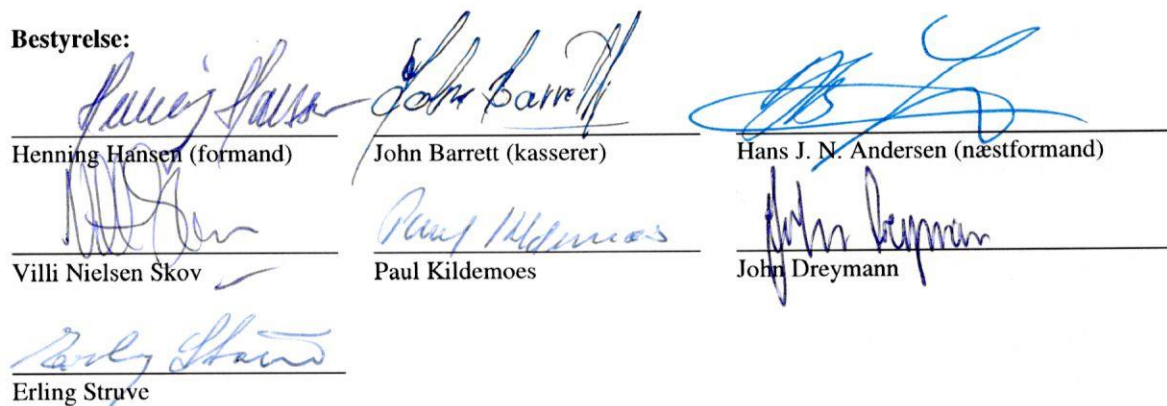 Bestyrelse:
Henning Hansen John Barrett
Henning Hansen (formand) John Barrett (kasserer) Hans J. N. Andersen (næstformand)
Paul Kildemoes John Dreymann
Villi Nielsen Skov Paul Kildemoes John Dreymann
Erling Struve
Erling Struve